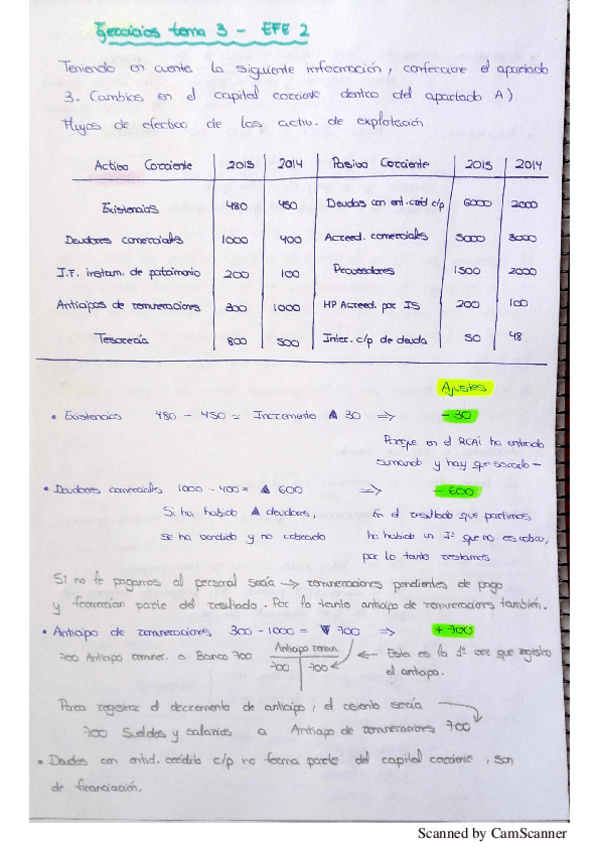 Ejercicios tema 3 - EFE 2
Teniendo en cuenta la siguiente información, confeccione el apartado
3. Cambios en el capital corriente dentro del apartado A)
Flujos de efectivo de las activ. de explotación
Activo Corriente 2015 2014 Pasivo Corriente 2015 2014
Existencias 480 450 Deudas con ent. créd c/p 6000 2000
Deudores comerciales 1000 400 Acreed. comerciales 5000 3000
I.F. instrum. de patrimonio 200 100 Proveedores 1500 2000
Anticipos de remuneraciones 300 1000 HP Acreed. por IS 200 100
Tesorería 800 500 Inter. c/p de deuda 50 48
Ajustes
• Existencias 480 - 450 = Incremento ▲ 30 => - 30
Porque en el RCAI ha entrado
sumando y hay que sacarlo -
• Deudores comerciales 1000 - 400 = ▲ 600 => - 600
Si ha habido ▲ deudores, En el resultado que partimos
se ha vendido y no cobrado ha habido un Iº que no es cobro,
por lo tanto restamos
Si no le pagamos al personal sería → remuneraciones pendientes de pago
y formarían parte del resultado. Por lo tanto anticipo de remuneraciones también.
• Anticipo de remuneraciones 300 - 1000 = ▼ 700 => + 700
700 Anticipo remuner. a Banco 700 Anticipo remun. ← Esto es la 1ª vez que registro
700 700 el anticipo.
Para registrar el decremento de anticipo, el asiento sería
700 Sueldos y salarios a Anticipo de remuneraciones 700
• Deudas con entid. crédito c/p no forma parte del capital corriente, son
de financiación.
Scanned by CamScanner